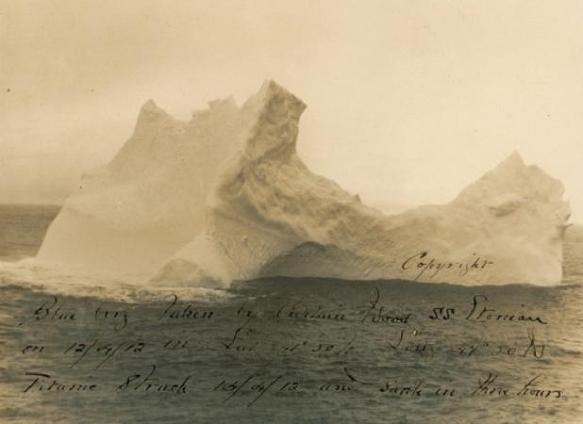 Copyright
Blue berg Taken by Captain Wood SS Etonian
on 12/4/12 in Lat 41° 50 N Long 49° 50 W
Titanic Struck 14/4/12 and sank in three hours